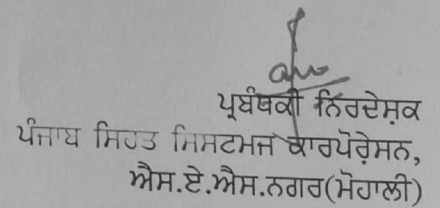 ਪ੍ਰਬੰਧਕੀ ਨਿਰਦੇਸ਼ਕ
ਪੰਜਾਬ ਸਿਹਤ ਸਿਸਟਮਜ ਕਾਰਪੋਰੇਸ਼ਨ,
ਐਸ.ਏ.ਐਸ.ਨਗਰ(ਮੋਹਾਲੀ)